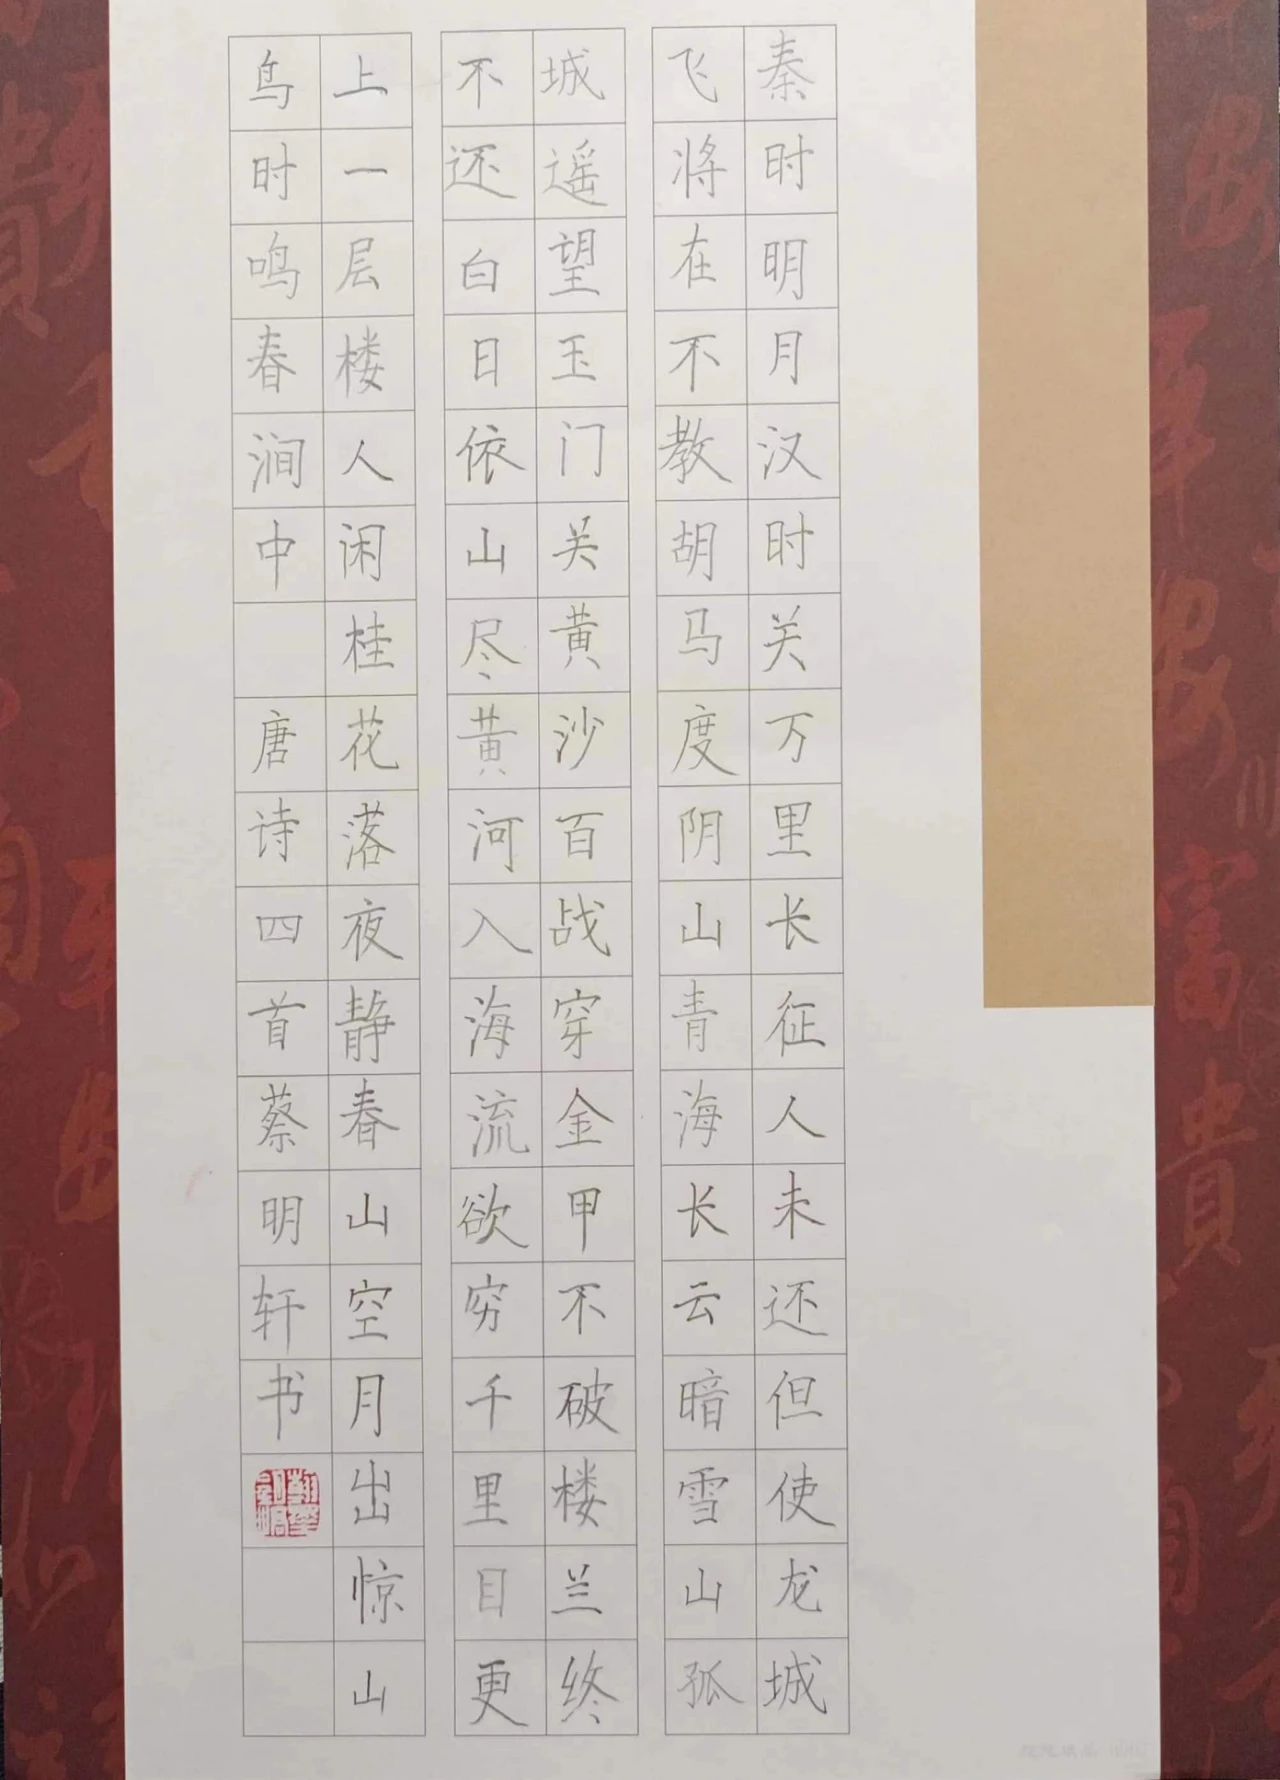 秦时明月汉时关万里长征人未还但使龙城
飞将在不教胡马度阴山青海长云暗雪山孤
城遥望玉门关黄沙百战穿金甲不破楼兰终
不还白日依山尽黄河入海流欲穷千里目更
上一层楼人闲桂花落夜静春山空月出惊山
鸟时鸣春涧中 唐诗四首蔡明轩书